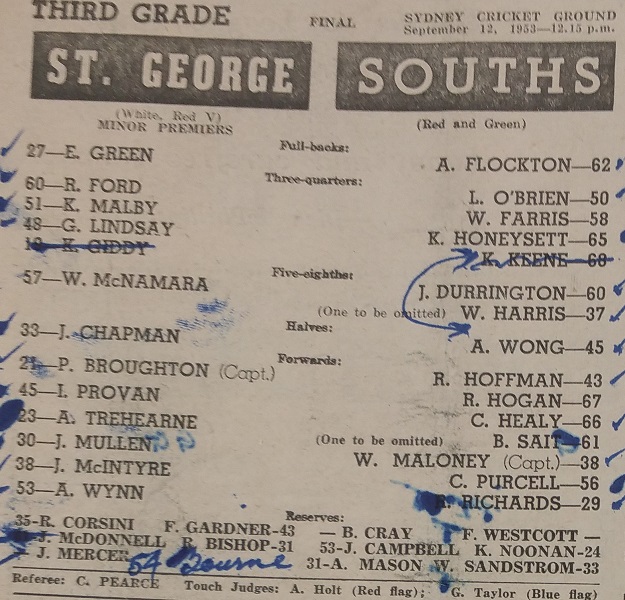 THIRD GRADE
FINAL
SYDNEY CRICKET GROUND
September 12, 1953—12.15 p.m.
ST. GEORGE
SOUTHS
(White, Red V)
MINOR PREMIERS
(Red and Green)
Full-backs:
27—E. GREEN
A. FLOCKTON—62
Three-quarters:
60—R. FORD
L. O'BRIEN—50
51—K. MALBY
W. FARRIS—58
48—G. LINDSAY
K. HONEYSETT—65
K. GIDDY
K. KEENE—68
Five-eighths:
57—W. McNAMARA
J. DURRINGTON—60
(One to be omitted) W. HARRIS—37
Halves:
33—J. CHAPMAN
A. WONG—45
Forwards:
21—P. BROUGHTON (Capt.)
R. HOFFMAN—43
45—I. PROVAN
R. HOGAN—67
23—A. TREHEARNE
C. HEALY—66
30—J. MULLEN
(One to be omitted) B. SAIT—61
38—J. McINTYRE
W. MALONEY (Capt.)—38
53—A. WYNN
C. PURCELL—56
RICHARDS—29
Reserves:
35-R. CORSINI F. GARDNER-43 — B. CRAY F. WESTCOTT —
J. McDONNELL R. BISHOP-31 53-J. CAMPBELL K. NOONAN-24
J. MERCER 54 Bourne 31-A. MASON W. SANDSTROM-33
Referee: C. PEARCE Touch Judges: A. Holt (Red flag); G. Taylor (Blue flag)